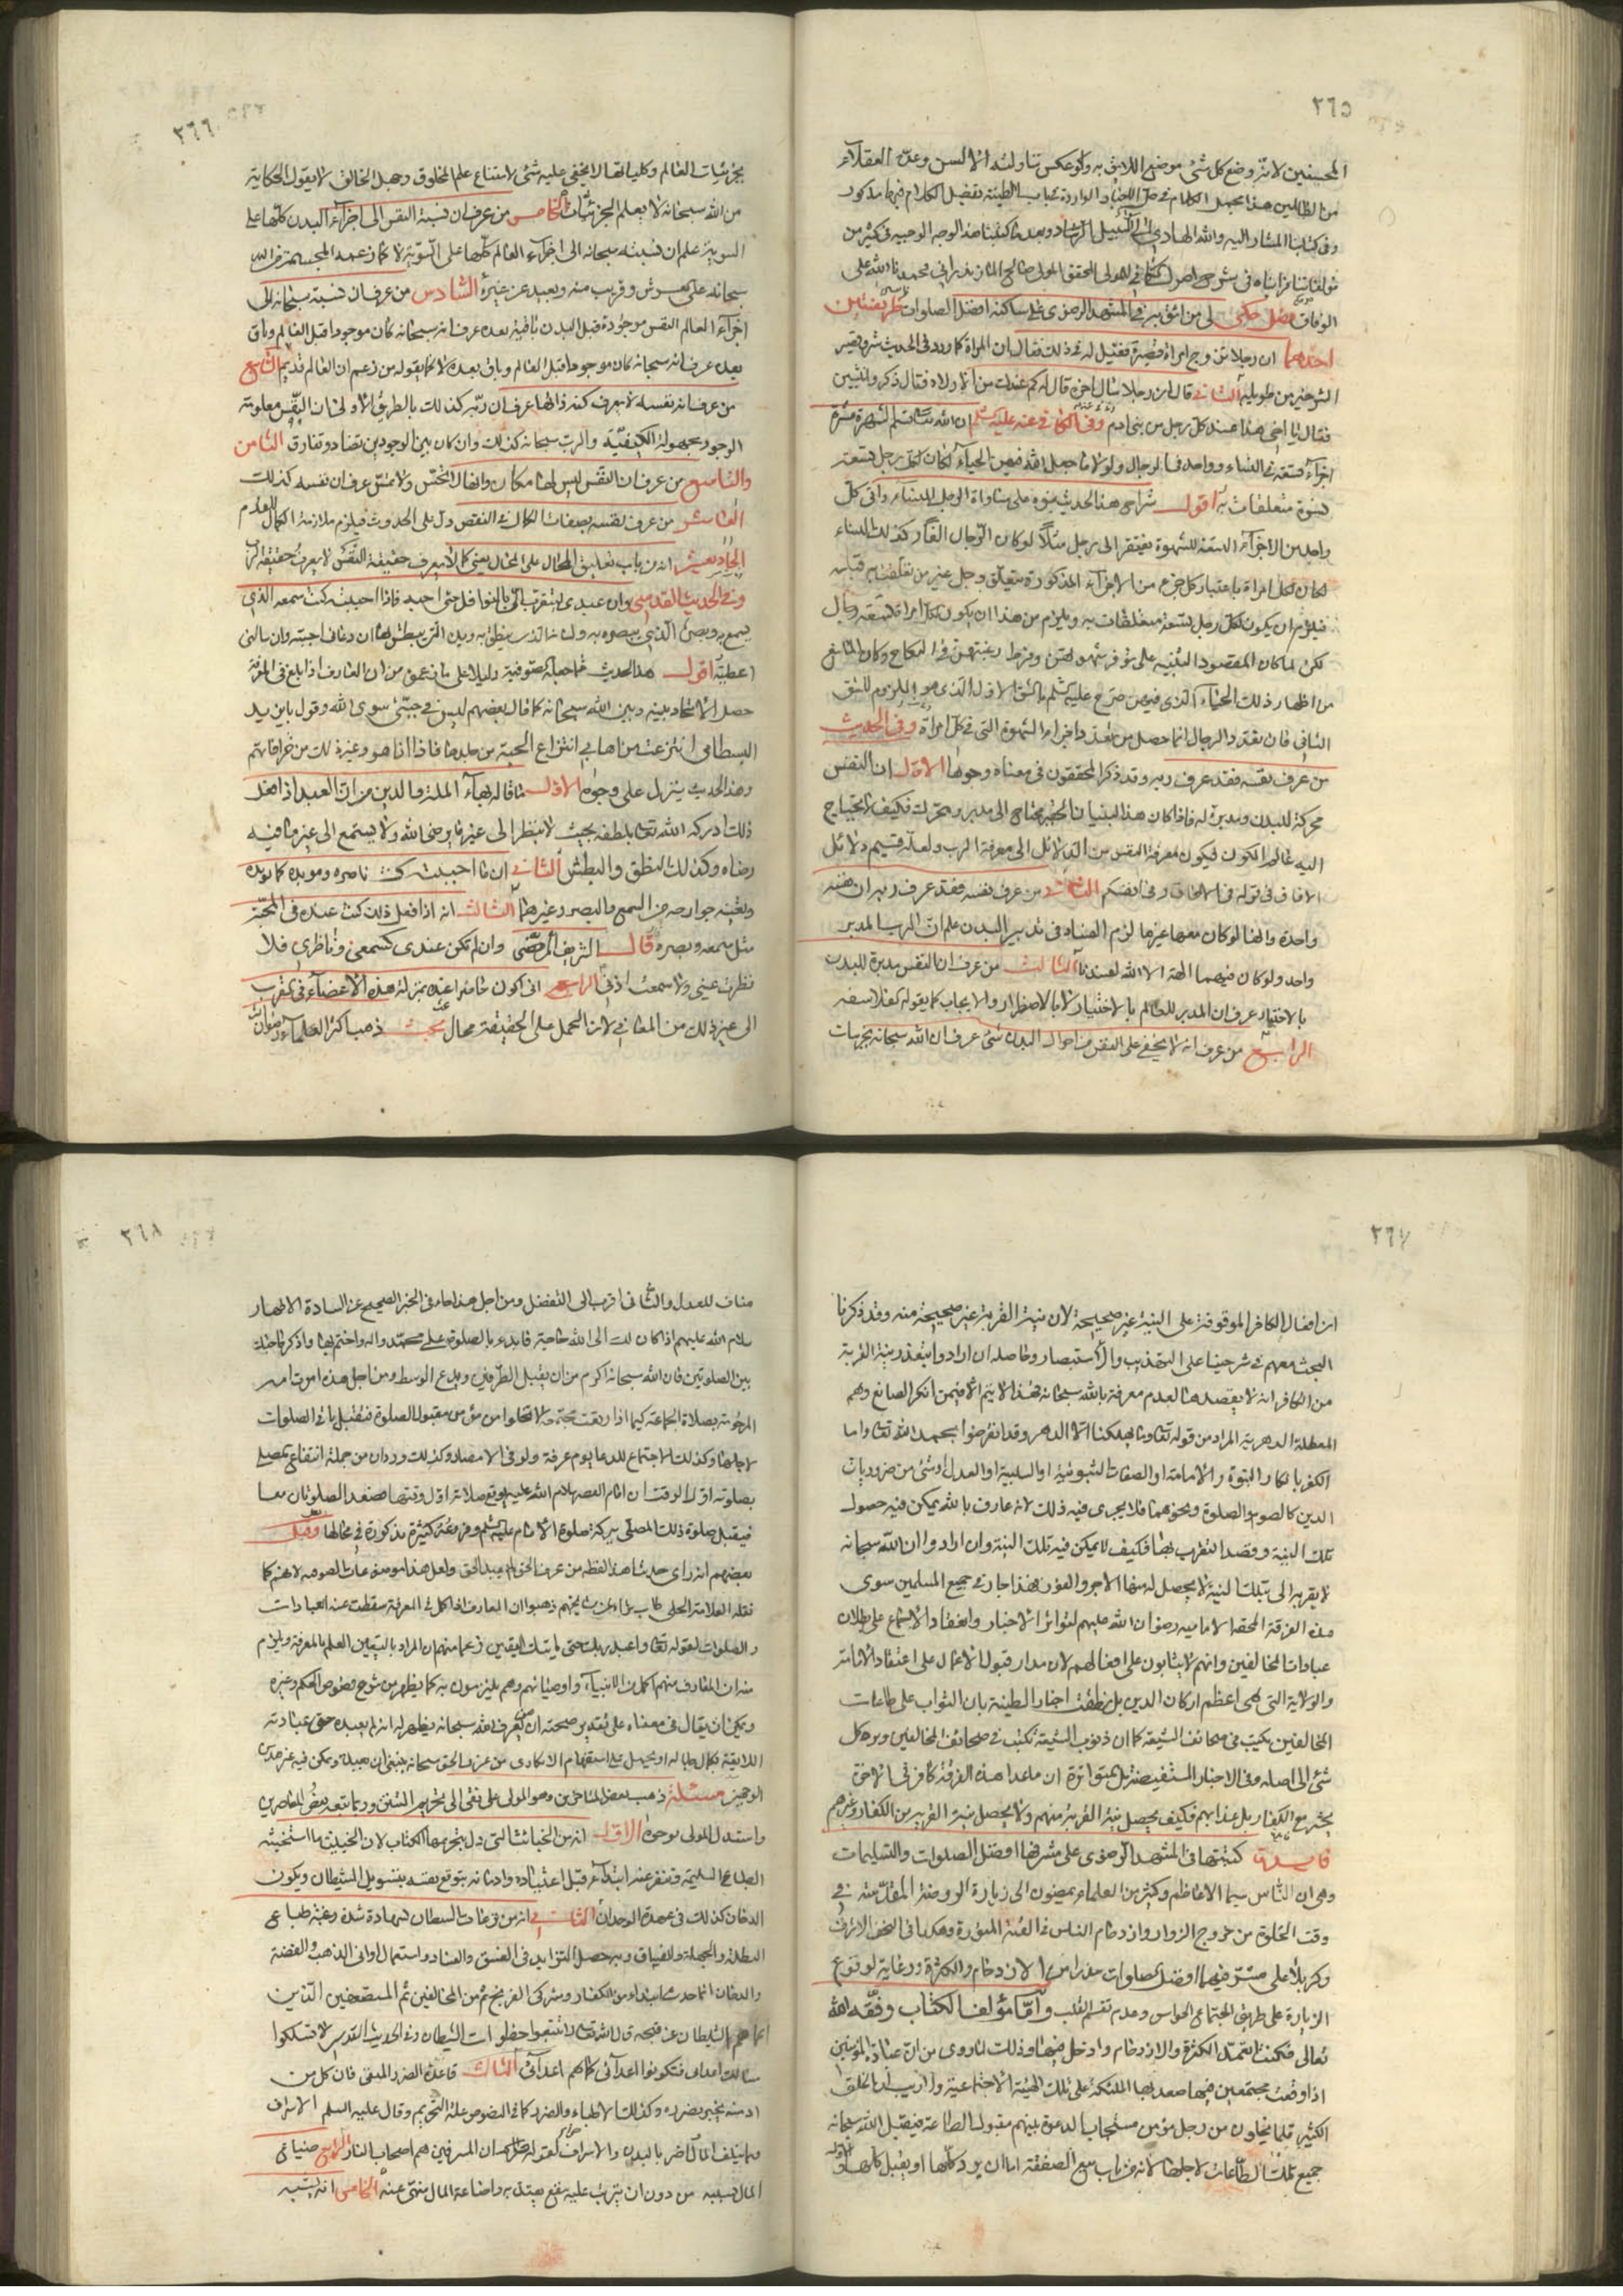 ٢٦٥
المحسنين لانه وضع كل شئ موضع اللايق به ولو عكس تناولته الالسن وعده العقلاء
من الظالمين هذا مجمل الكلام في حل الاخبار الواردة بباب الطينة تفصيل الكلام فيها مذكور
وفى كتابنا المشار اليه والله الهادي الى السبيل الرشاد وبعد ما كتبنا هذا الوجه الوجيه في كثير من
مؤلفاتنا راينا في شرح اصول الكافي للمولى المحقق المولى صالح المازندراني محمد
الوفاق فصل حكى لى من اثق به في المشهد الرضوى على ساكنه افضل الصلوات ظريفتين
احدهما ان رجلا تزوج امراة قصيرة فقيل له في ذلك فقال ان المراة كما ورد في الحديث شر وقصير
الشر خير من طويله الثانى قال ان رجلا سال اخر قال له كم عندك من الاولاد فقال ذكر وانثيين
فقال يا اخى هذا عند كل رجل من بنى ادم وفى الكافى عنه عليه السلم ان الله تعالى قسم الشهوة عشرة
اجزاء تسعة في النساء وواحد في الرجال ولولا ما جعل الله فيهن الحياء لكان لكل رجل تسعة
نسوة متعلقات به اقول شراح هذا الحديث بنوه على مساواة الرجل للنساء وافى كل
واحد من الاجزاء التسعة للشهوة يفتقر الى رجل مثلا لو كان الرجال الفا وكذلك النساء
لكان لكل امراة باعتبار كل جزء من الاجزاء المذكورة يتعلق رجل غير من تعلقت به قبله
فيلزم ان يكون لكل رجل تسعة متعلقات به ويلزم من هذا ان يكون لكل امراة تسعة رجال
لكن لما كان المقصود التنبيه على توفر شهوتهن وفرط رغبتهن في النكاح وكان المانع
من اظهار ذلك الحياء الذى فيهن صرح عليه السلم بالشق الاول الذى هو الملزوم للشق
الثانى فان تعدد الرجال انما حصل من تعدد اجزاء الشهوة التى في كل امراة وفى الحديث
من عرف نفسه فقد عرف ربه وقد ذكر المحققون فى معناه وجوها الاول ان النفس
محركة للبدن ومدبرة له فاذا كان هذا البنيان الحقير محتاج الى مدبر ومحرك فكيف لا يحتاج
اليه عالم الكون فيكون معرفة النفس من الدلائل الى معرفة الرب ولعله قسيم دلائل
الافاق في قوله في الافاق وفى انفسكم الثانى من عرف نفسه فقد عرف ربه ان نفسه
واحدة وانها لو كان معها غيرها لزم الفساد فى تدبير البدن علم ان الرب المدبر
واحد ولو كان فيهما الهة الا الله لفسدتا الثالث من عرف ان النفس مدبرة للبدن
بالاختيار عرف ان المدبر للعالم بالاختيار لا بالاضطرار والايجاب كما يقوله الفلاسفه
الرابع من عرف انه لا يخفى على النفس من احوال البدن شئ عرف ان الله سبحانه بجزئيات
٢٦٦
بجزئيات العالم وكلياتها لا يخفى عليه شئ لامتناع علم المخلوق وجهل الخالق لا يقول الحكماء
من الله سبحانه لا يعلم الجزئيات الخامس من عرف ان نسبة النفس الى اجزاء البدن كلها على
السوية علم ان نسبته سبحانه الى اجزاء العالم كلها على السوية لا كما زعمه المجسمة من الله
سبحانه على العرش وقريب منه وبعيد عن غيره السادس من عرف ان نسبة سبحانه الى
اجزاء العالم النفس موجودة قبل البدن باقية بعده عرف انه سبحانه كان موجودا قبل العالم وباق
بعده عرف انه سبحانه كان موجودا قبل العالم وباق بعده لا كما يقوله من زعم ان العالم قديم السابع
من عرف انه نفسه لا يعرف كنه ذاتها عرف ان ربه كذلك بالطريق الاولى ان النفس معلومة
الوجود مجهولة الكيفية والرب سبحانه كذلك وان كان بين الوجودين تضاد وتفارق الثامن
والتاسع من عرف ان النفس ليس لها مكان وانها لا تحس ولا تمس عرف ان نفسه كذلك
العاشر من عرف نفسه بصفات الكمال في النقص دل على الحدوث فيلزم ملازمة الكمال للقدم
الحادي عشر انه من باب تعليق المحال على المحال يعنى كما لا يعرف حقيقة النفس لا يعرف حقيقة الرب
وفى الحديث القدسى وان عبدى ليتقرب الى بالنوافل حتى احبه فاذا احببته كنت سمعه الذى
يسمع به وبصره الذى يبصره به ولسانه الذى ينطق به ويده التى يبطش بها ان دعانى اجبته وان سالنى
اعطيته اقول هذا الحديث مما جعله الصوفية دليلا على ما زعموه من ان العارف اذا بلغ فى المعرفة
حصل الاتحاد بينه وبين الله سبحانه كما قال بعضهم ليس فى جبتى سوى الله وقول بايزيد
البسطامى انتزعت من اهابى انتزاع الحية من جلدها فاذا انا هو وغير ذلك من خرافاتهم
وهذا الحديث ينزل على وجوه الاول ما قاله بهاء الملة والدين من ان العبد اذا فعل
ذلك ادركه الله تعالى بلطفه بحيث لا ينظر الى غير ما يرضى الله ولا يستمع الى غير ما فيه
رضاه وكذلك النطق والبطش الثانى ان ما احببته كنت ناصره ومويده كما يويده
ويعينه جوارحه من السمع والبصر وغيرهما الثالث انه اذا فعل ذلك كنت عنده فى المحبة
مثل سمعه وبصره قال الشريف المرتضى وان لم تكن عندى كسمعى وناظرى فلا
نظرت عينى ولا سمعت اذنى الرابع انى اكون حاضرا عنده بمنزلة هذه الاعضاء فى القرب
الى غير ذلك من المعانى لان الحمل على الحقيقة محال مبحث ذهب اكثر العلماء رضوان الله
٢٦٧
ان افعال الكافر الموقوفة على النية غير صحيحة لان نية القربة غير صحيحة منه وقد ذكرنا
البحث معهم فى شرحينا على التهذيب والاستبصار وحاصله ان ارادوا بتعذر نية القربة
من الكافر انه لا يقصدها لعدم معرفة بالله سبحانه فهذا لا يتم الا فيمن انكر الصانع وهم
المعطلة الدهرية المراد من قوله تعالى وما يهلكنا الا الدهر وقد انقرضوا بحمد الله تعالى واما
الكفر بانكار النبوة والامامة او الصفات الثبوتية او السلبية او العدل او شئ من ضروريات
الدين كالصوم والصلوة ونحوهما فلا يجرى فيه ذلك لانه عارف بالله يمكن فيه حصول
تلك النية وقصد التقرب بها فكيف لا يمكن فيه تلك النية وان ارادوا ان الله سبحانه
لا يقربه الى بتلك النية لا يحصل له منها الاجر والعوض فهذا جار فى جميع المسلمين سوى
هذه الفرقة المحقة الامامية رضوان الله عليهم لتواتر الاخبار وانعقاد الاجماع على بطلان
عبادات المخالفين وانهم لا يثابون على افعالهم لان مدار قبول الاعمال على اعتقاد الامامة
والولاية التى هى اعظم اركان الدين بل نطقت اخبار الطينة بان الثواب على طاعات
المخالفين يكتب فى صحائف الشيعة كما ان ذنوب الشيعة تكتب فى صحائف المخالفين ويرد كل
شئ الى اصله وفى الاخبار المستفيضة بل المتواترة ان ما عدا هذه الفرقة كافر فى الاخرة
يحشر مع الكفار بل عذابهم فكيف يحصل نية القربة منهم ولا يحصل نية القربة من الكفار وغيرهم
فايدة كتبتها فى المشهد الرضوى على مشرفها افضل الصلوات والتسليمات
وهى ان الناس سيما الاعاظم وكثير من العلماء يمضون الى زيارة الروضة المقدسة فى
وقت الخلوة من خروج الزوار وازدحام الناس فى القبة المنورة وهكذا فى النجف الاشرف
وكربلا على مشرفيهما افضل الصلوات حذرا من الازدحام والكثرة ورعاية لوقوع
الزيارة على طريق اجتماع الحواس وعدم تقسم القلب واما مؤلف الكتاب وفقه الله
تعالى فكنت اتعمد الكثرة والازدحام وادخل فيها وذلك لما روى من ان عبادة المؤمنين
اذا وقعت مجتمعين فيها صعد بها الملئكة على تلك الهيئة الاجتماعية ولا ريب ان الخلق
الكثير قلما يخلون من رجل مؤمن مستجاب الدعوة بينهم مقبول الطاعة فيقبل الله سبحانه
جميع تلك الطاعات لاجلها لانه من باب بيع الصفقة اما ان يرد كلها او يقبل كلها والاول
٢٦٨
مناف للعدل والثانى اقرب الى التفضل ومن اجل هذا جاء فى الخبر الصحيح عن السادة الاطهار
سلام الله عليهم اذا كان لك الى الله حاجة فابدء بالصلوة على محمد واله واختم بها واذكر حاجتك
بين الصلوتين فان الله سبحانه اكرم من ان يقبل الطرفين ويدع الوسط ومن اجل هذه امرت امة
المرحومة بصلاة الجماعة كيما اذا رفعت مجتمعة لا تخلوا من مؤمن مقبول الصلوة فتقبل باقى الصلوات
لاجلها وكذلك الاجتماع للدعا يوم عرفة ولو فى الامصار وكذلك ورد ان من جملة انتفاع المصلى
بصلوته اول الوقت ان امام العصر سلام الله عليه يوقع صلاته اول وقتها فتصعد الصلوتان معا
فيقبل صلوة ذلك المصلى ببركة صلوة الامام عليه السلم وفروعه كثيرة مذكورة فى محالها وقيل
بعضهم انه راى حديثا هذا لفظه من عرف الحق لم يعبد الحق ولعل هذا موضوعات الصوفية لانهم كما
نقله العلامة الحلى طاب ثراه عن شيخهم ذهبوا ان العارف اذا كمل فى المعرفة سقطت عنه العبادات
والصلوات لقوله تعالى واعبد ربك حتى ياتيك اليقين زعما منهم ان المراد باليقين العلم بالمعرفة ويلزم
منه ان العارف منهم اكمل من الانبياء واوصيائهم وهم يلتزمون به كما يظهر من شرح فصوص الحكم وغيره
ويمكن ان يقال فى معناه على تقدير صحته ان من يعرف الله سبحانه يظهر له انه لم يعبده حق عبادته
اللايقة بكمال جلاله او يحمل على استفهام الانكارى من عرف الحق سبحانه ينبغى ان يعبده ويمكن فيه غير هذين
الوجهين مسئلة ذهب بعض المتاخرين وهو المولى على نقى الى تحريم التتن وربما تبعه بعض المعاصرين
واستدل المولى بوجوه الاول انه من الخبائث التى دل بتحريمها الكتاب لان الخبيث ما استخبثه
الطباع السليمة وتنفر عنه ابتداء قبل اعتياده وادمانه بتوقع نفسه بتسويل الشيطان ويكون
الدخان كذلك فى عهدة الوجدان الثانى انه من بدعات السلطان لشهادة شدة رغبة طباع
البطلة والجهلة والفساق وبه حصل التزايد فى الفسق والعناد واستعمال اوانى الذهب والفضة
والدخان انما حدث ابتداء من الكفار ومشركى الفرنج ثم من المخالفين ثم المستضعفين الذين
الشيطان عن فتحه قال الله تعالى لا تتبعوا خطوات الشيطان وفى الحديث القدسى لا تسلكوا
مسالك اعدائى فتكونوا اعدائى كما هم اعدائى الثالث قاعدة الضرر المنفى فان كل من
ادمنه يخبر بضرره وكذلك الاطباء والضرر كما فى النصوص علة التحريم وقال عليه السلم الاسراف
ما يتلف المال اضر بالبدن والاسراف حرام لقوله تعالى ان المسرفين هم اصحاب النار الرابع ضياع
المال بسببه من دون ان يترتب عليه نفع يعتد به واضاعة المال منهى عنه الخامس انه يشبه